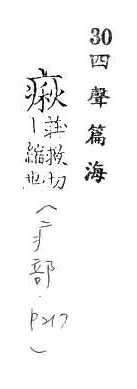 30 四聲篇海
㾭
莊救切
丨縮也
(疒部．P217)